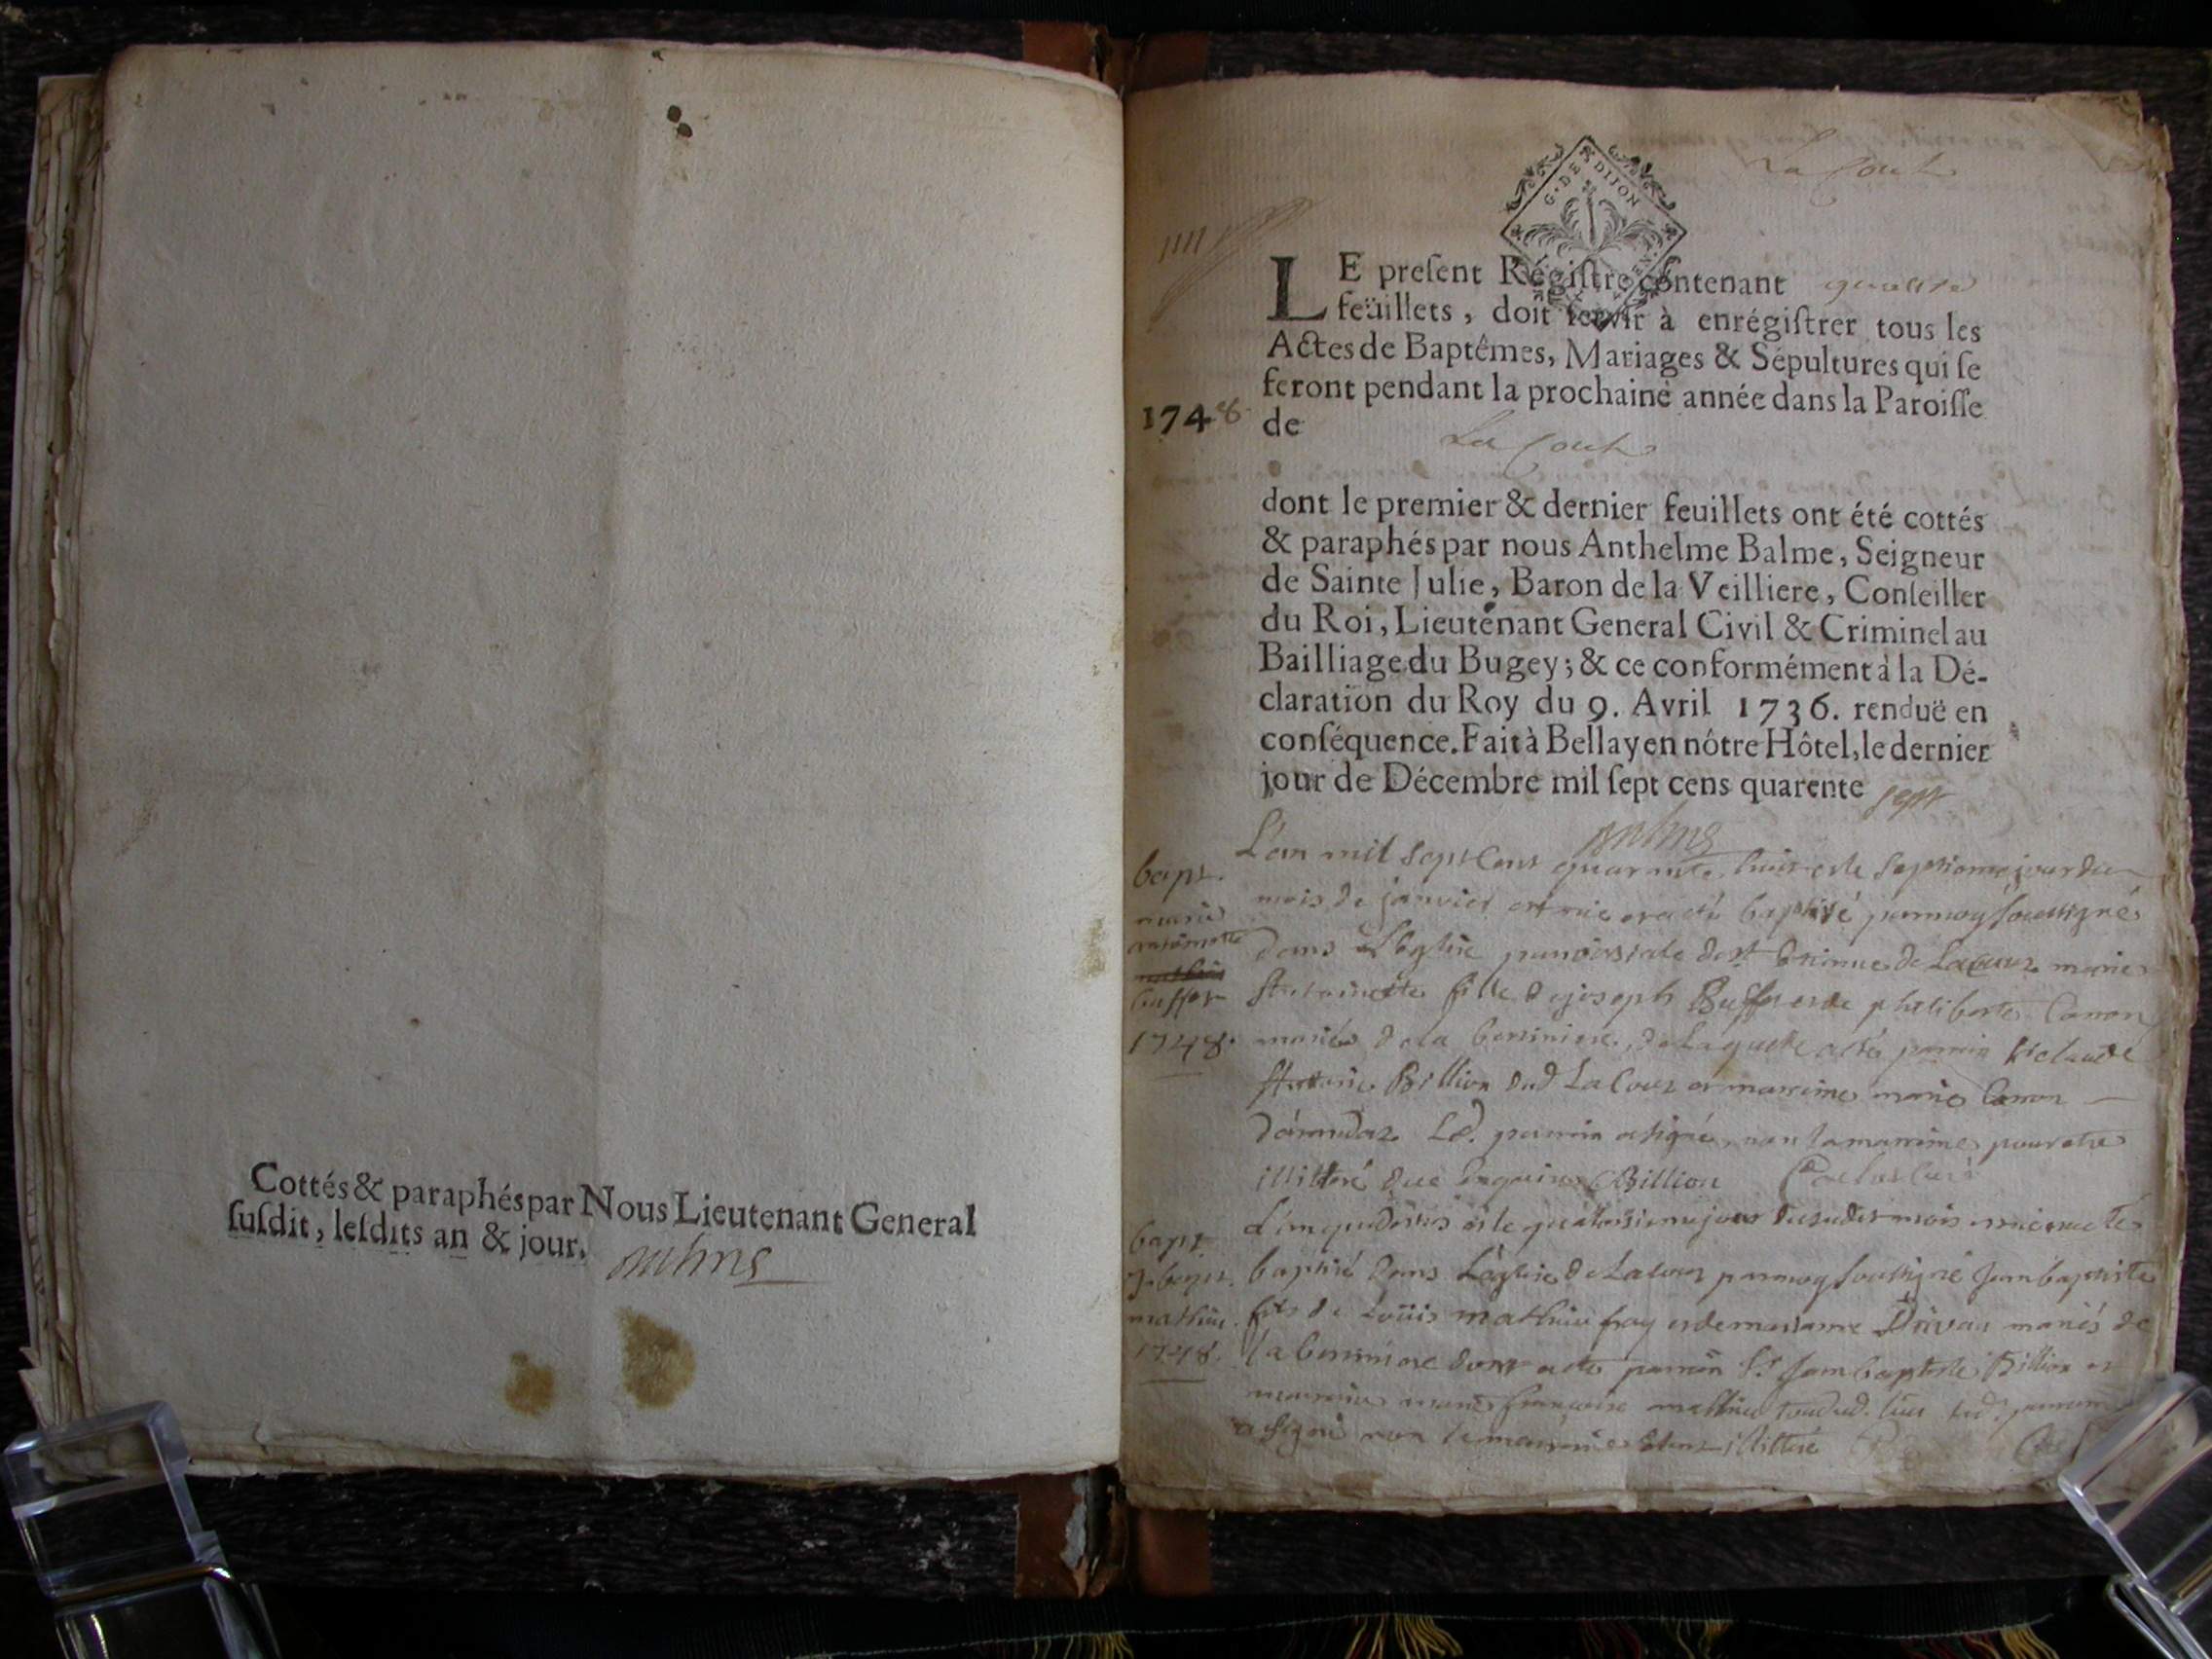 Cottés & paraphés par Nous Lieutenant General
ſuſdit, leſdits an & jour.
La Court
G. DE DIJON
LE preſent Régiſtre contenant quattre
feüillets, doit ſervir à enrégiſtrer tous les
Actes de Baptêmes, Mariages & Sépultures qui ſe
feront pendant la prochaine année dans la Paroiſſe
1748
de La Court
dont le premier & dernier feuillets ont été cottés
& paraphés par nous Anthelme Balme, Seigneur
de Sainte Julie, Baron de la Veilliere, Conſeiller
du Roi, Lieutenant General Civil & Criminel au
Bailliage du Bugey; & ce conformément à la Dé-
claration du Roy du 9. Avril 1736. renduë en
conſéquence. Fait à Bellay en nôtre Hôtel, le dernier
jour de Décembre mil ſept cens quarente sept
bapt.
marie
buffet
1748.
L'an mil sept Cent quarante huit et le septieme jour du
mois de janvier est née et a été baptisé par moy soussigné
dans L'eglise paroissiale de st Etienne de Lacour marie
fille de joseph Buffet et de philiberte Canon
mariés de la de Laquelle a été parrin sr claude
Billion dud LaCour et marreine marie Canon
Led. parrin a signé non la marreine pour etre
illitteré Billion curé
bapt.
J. bapt.
mathieu.
1748.
L'an que dessus et le quatorzieme jour mois
baptisé dans L'église de Lacour par moy soussigné Jean baptiste
fils de Loüis mathieu et de mariés de
la parrin sr Jean baptiste Billion et
marie françoise mathieu
a signé non la marreine illitteré